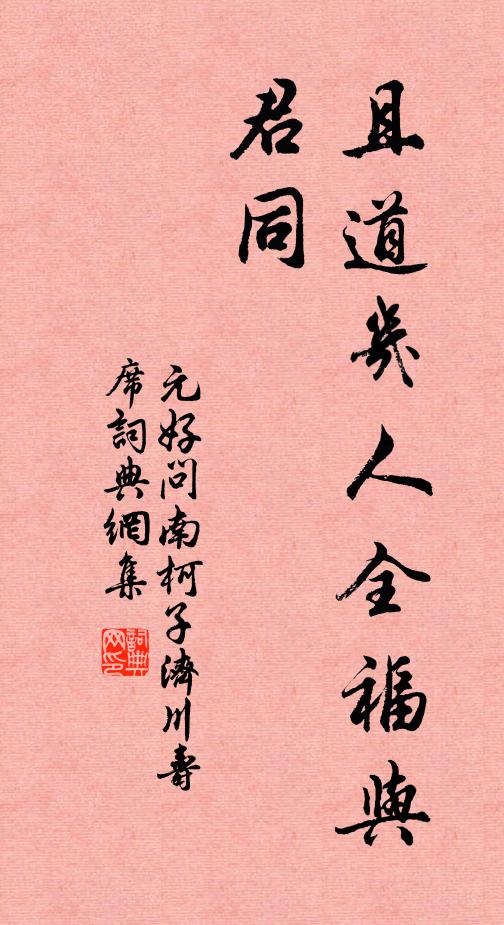 且道幾人全福與
君同
元好問南柯子濟川壽
席詞典網集
詞典网印